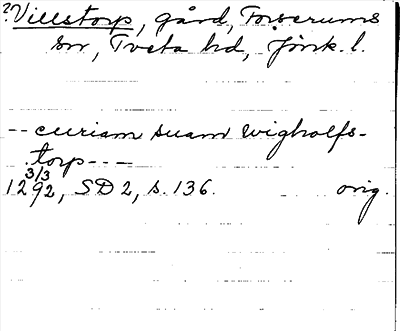 ?Villstorp, gård, Forserums
sn, Tveta hd, Jönk. l.
-- curiam suam wigholfs-
torp---
3/3
1292, SD 2, s. 136. orig.